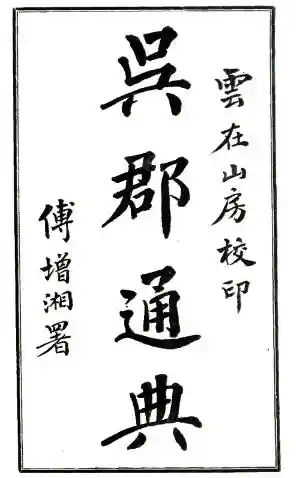 雲在山房校印
吳郡通典
傅增湘署